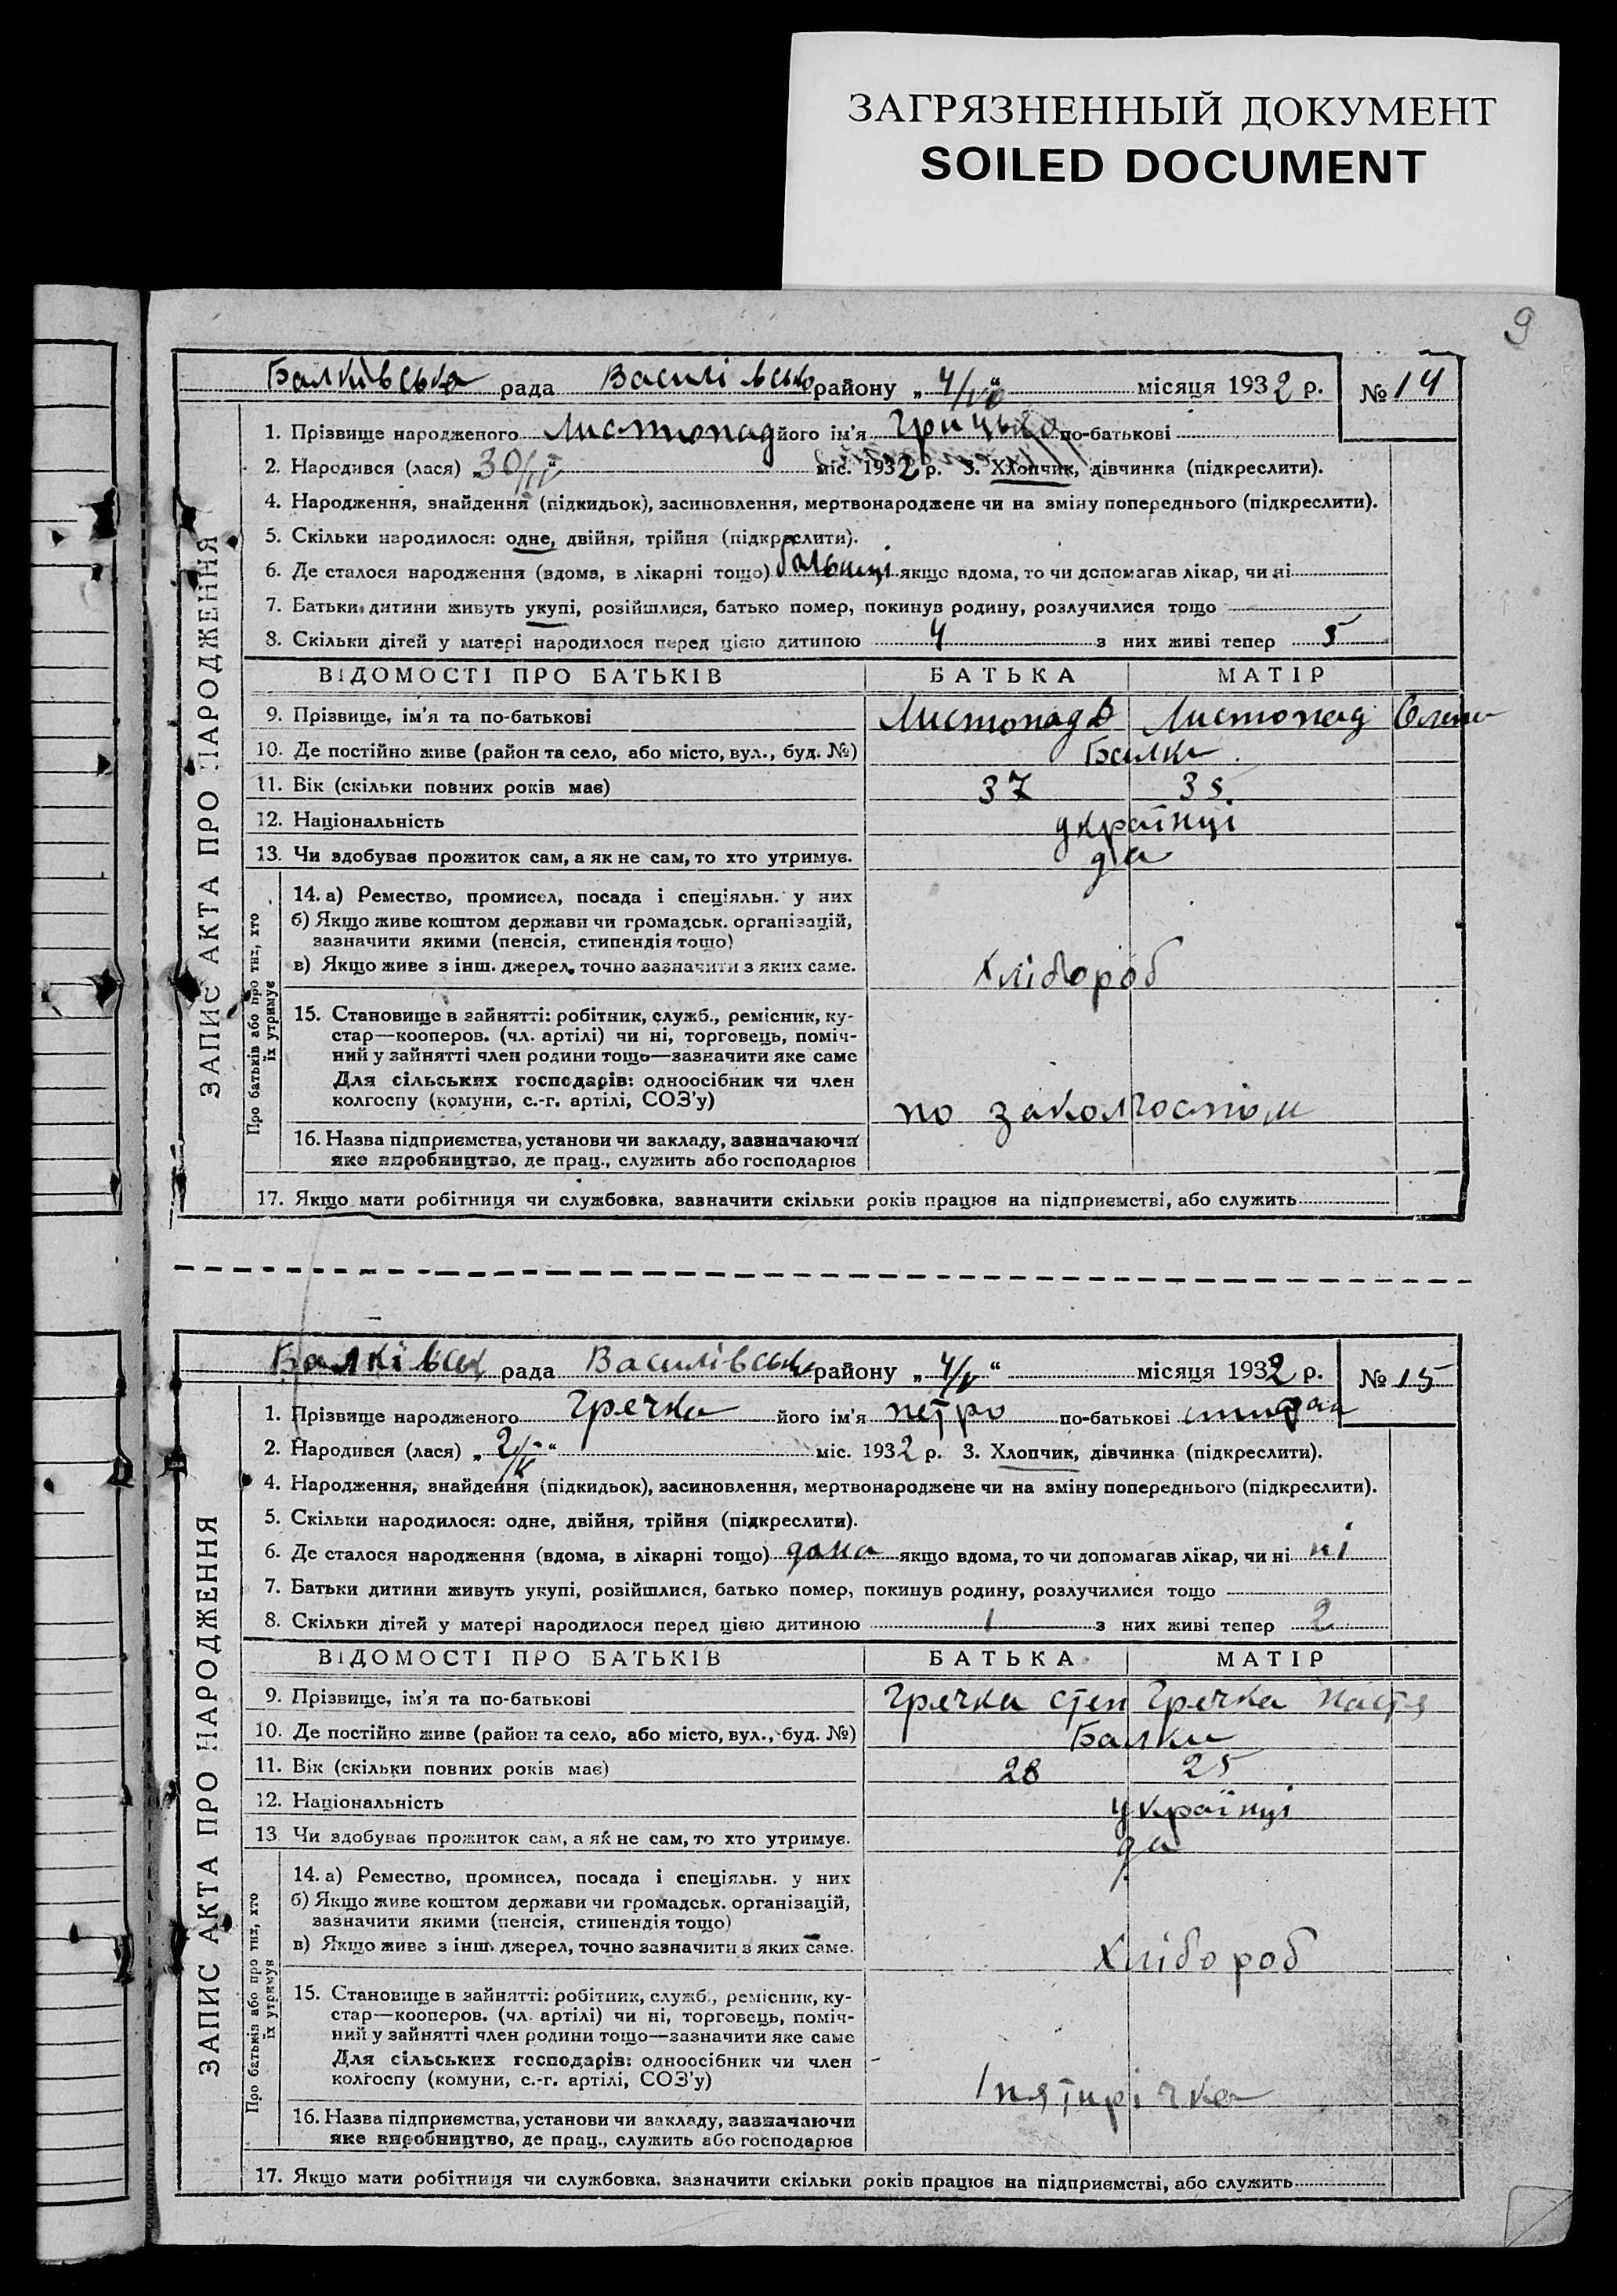 ЗАГРЯЗНЕННЫЙ ДОКУМЕНТ
SOILED DOCUMENT
9
Балківська рада Василівсько району „ 4/V “ місяця 1932 р. № 14
1. Прізвище народженого Листопад його ім’я Грицько по-батькові
2. Народився (лася) „ 30/IV “ міс. 1932 р. 3. Хлопчик, дівчинка (підкреслити).
4. Народження, знайдення (підкидьок), засиновлення, мертвонароджене чи на зміну попереднього (підкреслити).
5. Скільки народилося: одне, двійня, трійня (підкреслити).
6. Де сталося народження (вдома, в лікарні тощо) больниці якщо вдома, то чи допомагав лікар, чи ні
7. Батьки дитини живуть укупі, розійшлися, батько помер, покинув родину, розлучилися тощо
8. Скільки дітей у матері народилося перед цією дитиною 4 з них живі тепер 5
ЗАПИС АКТА ПРО НАРОДЖЕННЯ
ВІДОМОСТІ ПРО БАТЬКІВ БАТЬКА МАТІР
9. Прізвище, ім’я та по-батькові Листопад Листопад Олена
10. Де постійно живе (район та село, або місто, вул., буд. №) Балки
11. Вік (скільки повних років має) 37 35
12. Національність українці
13. Чи здобуває прожиток сам, а як не сам, то хто утримує. да
Про батьків або про тих, хто
їх утримує
14. а) Ремество, промисел, посада і спеціяльн. у них
б) Якщо живе коштом держави чи громадськ. організацій,
зазначити якими (пенсія, стипендія тощо)
в) Якщо живе з інш. джерел, точно зазначити з яких саме. хлібороб
15. Становище в зайнятті: робітник, служб., ремісник, ку-
стар—кооперов. (чл. артілі) чи ні, торговець, поміч-
ний у зайнятті член родини тощо—зазначити яке саме
Для сільських господарів: одноосібник чи член
колгоспу (комуни, с.-г. артілі, СОЗ’у) по
16. Назва підприємства, установи чи закладу, зазначаючи
яке виробництво, де прац., служить або господарює
17. Якщо мати робітниця чи службовка, зазначити скільки років працює на підприємстві, або служить
Балківськ рада Василівськ району „ 4/V “ місяця 1932 р. № 15
1. Прізвище народженого Гречка його ім’я петро по-батькові
2. Народився (лася) „ 2/V “ міс. 1932 р. 3. Хлопчик, дівчинка (підкреслити).
4. Народження, знайдення (підкидьок), засиновлення, мертвонароджене чи на зміну попереднього (підкреслити).
5. Скільки народилося: одне, двійня, трійня (підкреслити).
6. Де сталося народження (вдома, в лікарні тощо) дома якщо вдома, то чи допомагав лікар, чи ні ні
7. Батьки дитини живуть укупі, розійшлися, батько помер, покинув родину, розлучилися тощо
8. Скільки дітей у матері народилося перед цією дитиною 1 з них живі тепер 2
ЗАПИС АКТА ПРО НАРОДЖЕННЯ
ВІДОМОСТІ ПРО БАТЬКІВ БАТЬКА МАТІР
9. Прізвище, ім’я та по-батькові Гречка степ Гречка Настя
10. Де постійно живе (район та село, або місто, вул., буд. №) Балки
11. Вік (скільки повних років має) 28 25
12. Національність українці
13. Чи здобуває прожиток сам, а як не сам, то хто утримує. да
Про батьків або про тих, хто
їх утримує
14. а) Ремество, промисел, посада і спеціяльн. у них
б) Якщо живе коштом держави чи громадськ. організацій,
зазначити якими (пенсія, стипендія тощо)
в) Якщо живе з інш. джерел, точно зазначити з яких саме. Хлібороб
15. Становище в зайнятті: робітник, служб., ремісник, ку-
стар—кооперов. (чл. артілі) чи ні, торговець, поміч-
ний у зайнятті член родини тощо—зазначити яке саме
Для сільських господарів: одноосібник чи член
колгоспу (комуни, с.-г. артілі, СОЗ’у) 1 пятирічка
16. Назва підприємства, установи чи закладу, зазначаючи
яке виробництво, де прац., служить або господарює
17. Якщо мати робітниця чи службовка, зазначити скільки років працює на підприємстві, або служить